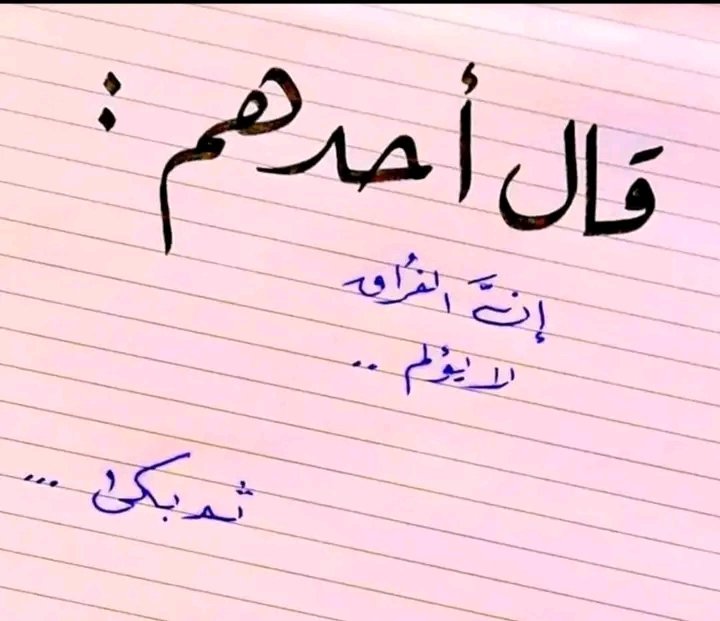 قال أحدهم :
إنَّ الفُراق
لا يؤلم ..
ثم بكى ...